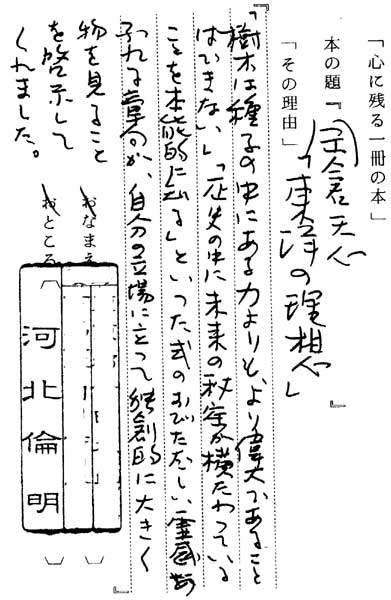 「心に残る一冊の本」
本の題『岡倉天心「東洋の理想」』
「その理由」
「樹木は種子の中にある力よりもより偉大であること
はできない」「歴史の中に未来の秘密が横たわっている
ことを本能的に知る」といった式のおびただしい霊感あ
ふれる章句が、自分の立場に立って独創的に大きく
物を見ること
を啓示して
くれました。
おなまえ
おところ
河北倫明